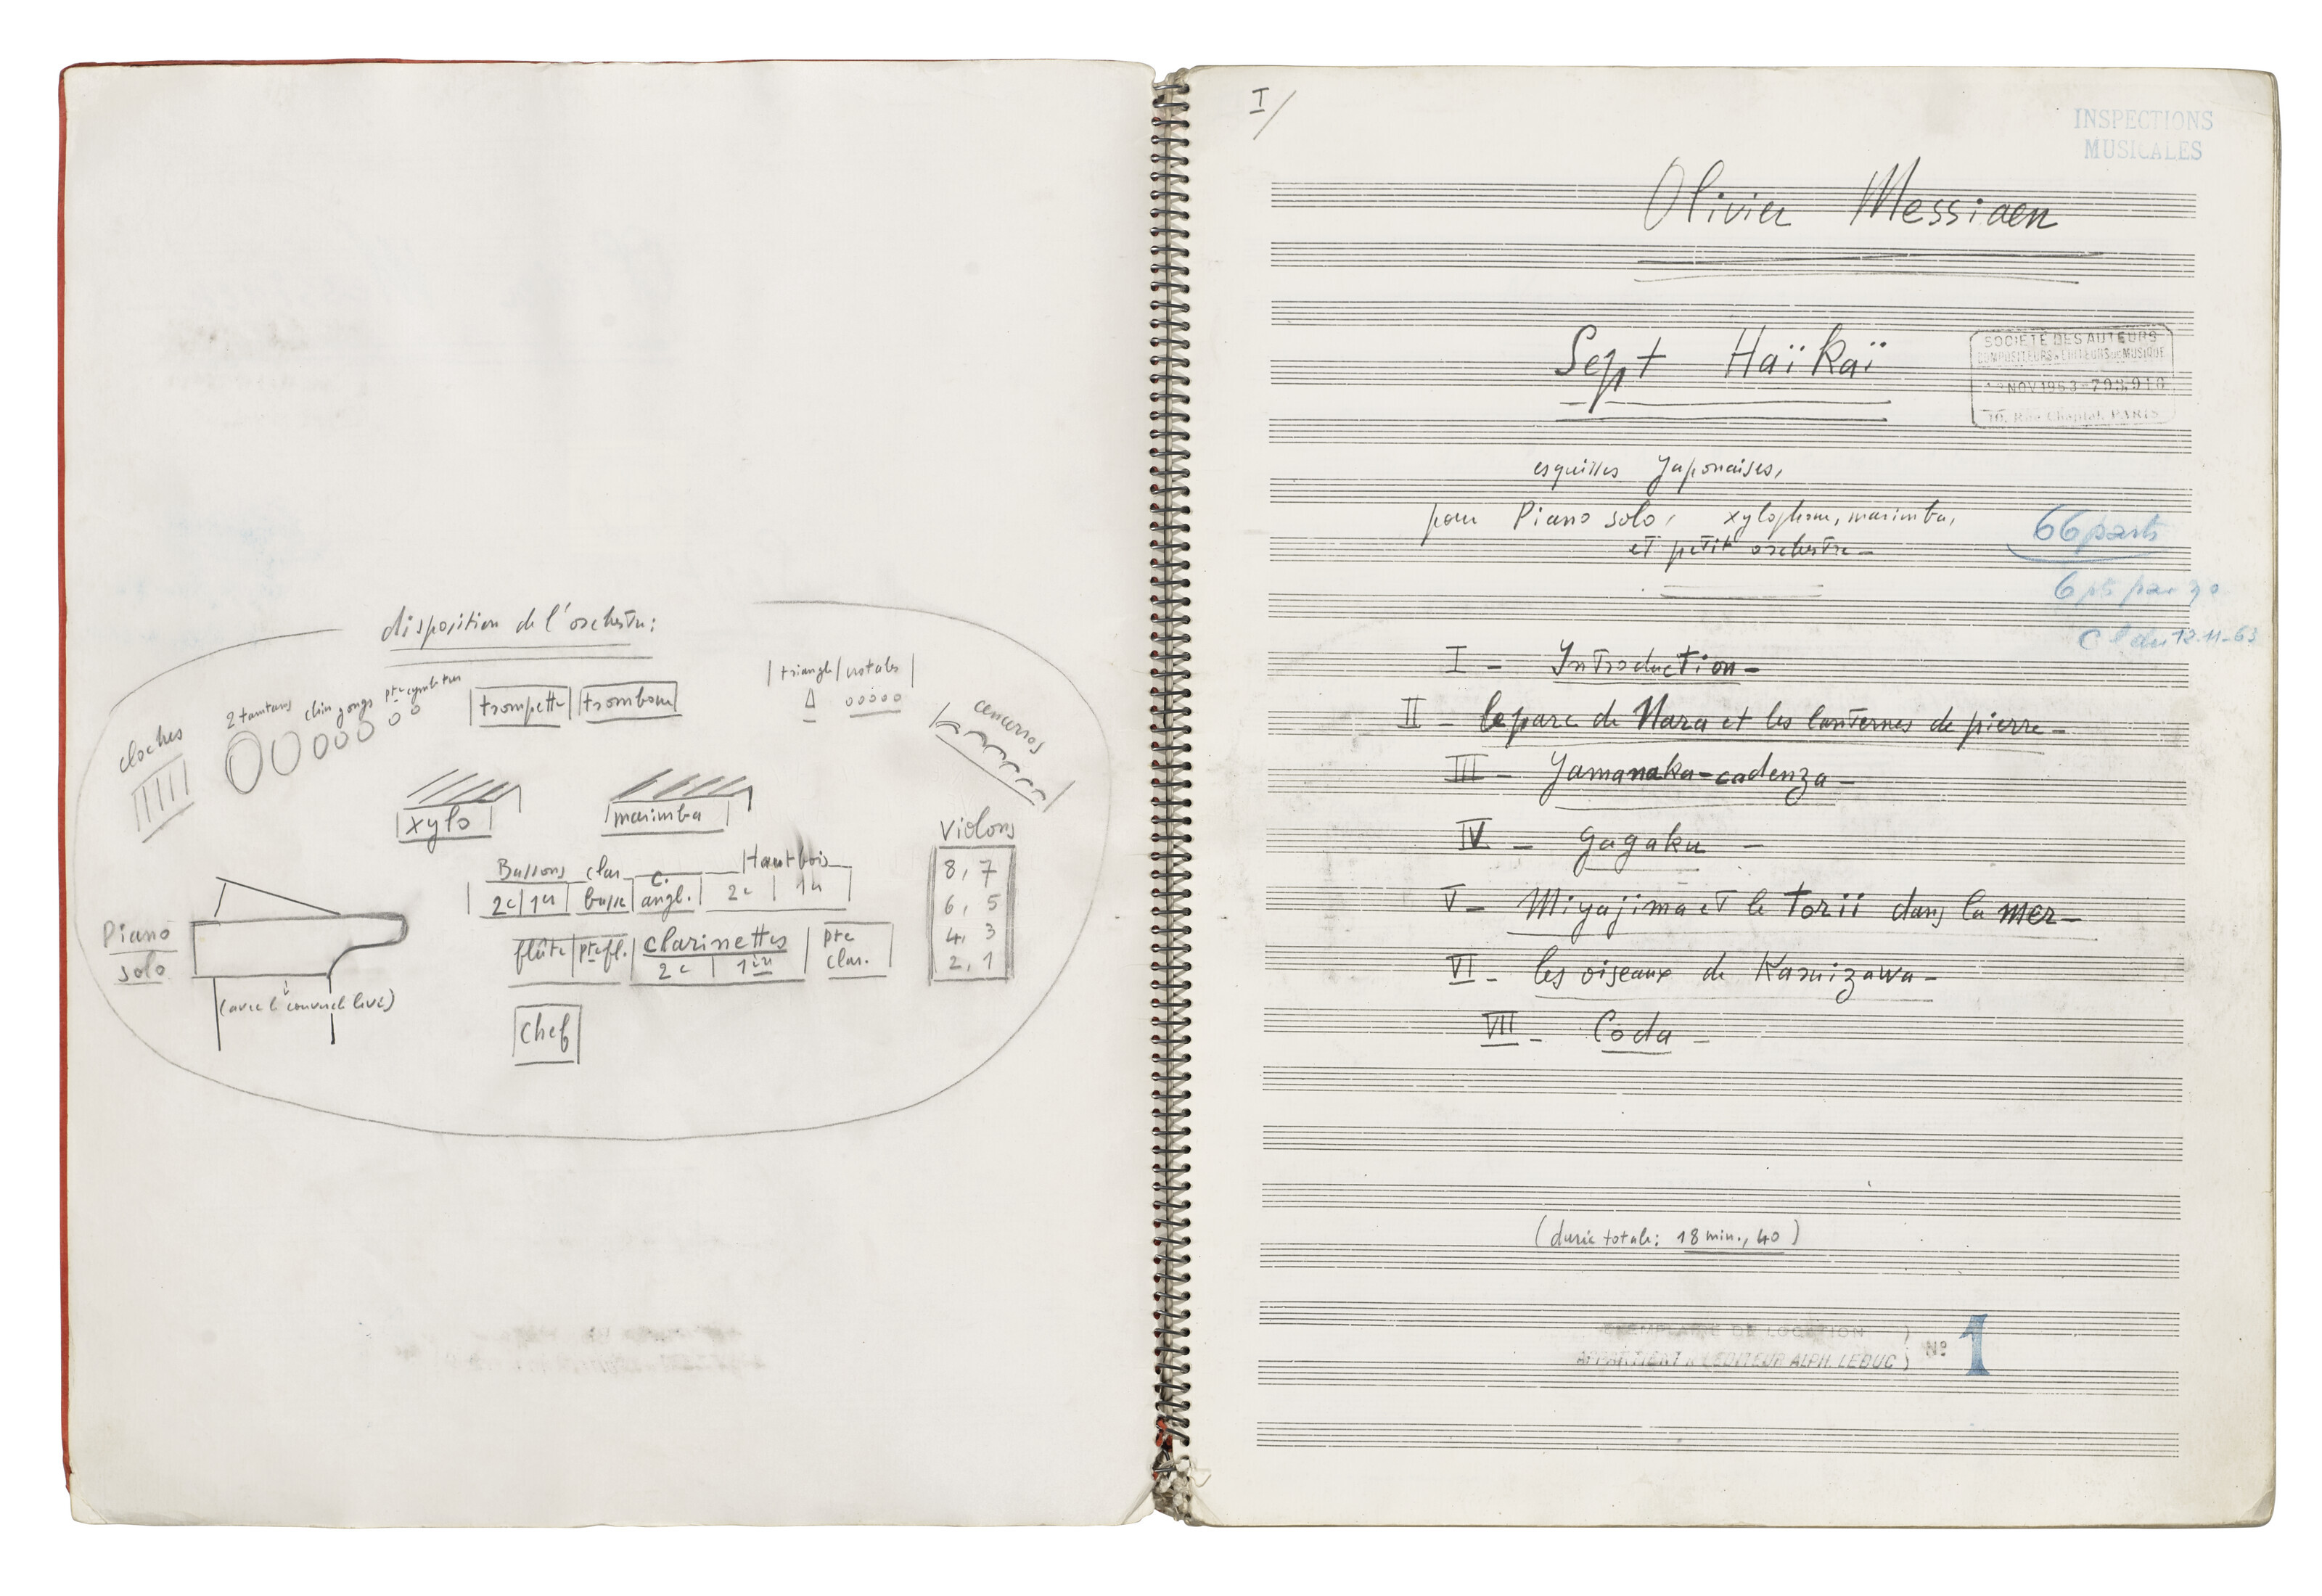 disposition de l'orchestre:
cloches
2 tamtams
chin gongs
pte cymb
trompette
trombone
triangle
crotales
cencerros
xylo
marimba
Violons
8, 7
6, 5
4, 3
2, 1
Bassons
clar.
c.
Hautbois
2e
1er
basse
angl.
2e
1er
flûte
pte fl.
clarinettes
pte
2e
1ère
clar.
Piano
solo
(avec le couvercle levé)
chef
I/
INSPECTIONS
MUSICALES
Olivier Messiaen
Sept Haïkaï
SOCIETE DES AUTEURS
COMPOSITEURS & EDITEURS DE MUSIQUE
NOV 1963
10, Rue Chaptal, PARIS
esquisses Japonaises,
pour Piano solo, xylophone, marimba,
et petit orchestre-
66 parts
6 pts par
12-11-63
I - Introduction-
II - le parc de Nara et les lanternes de pierre-
III - Yamanaka-cadenza-
IV - Gagaku -
V - Miyajima et le torii dans la mer-
VI - les oiseaux de Karuizawa-
VII - Coda -
(durée totale: 18 min., 40)
EXEMPLAIRE DE LOCATION )
APPARTIENT A L'EDITEUR ALPH. LEDUC ) No 1